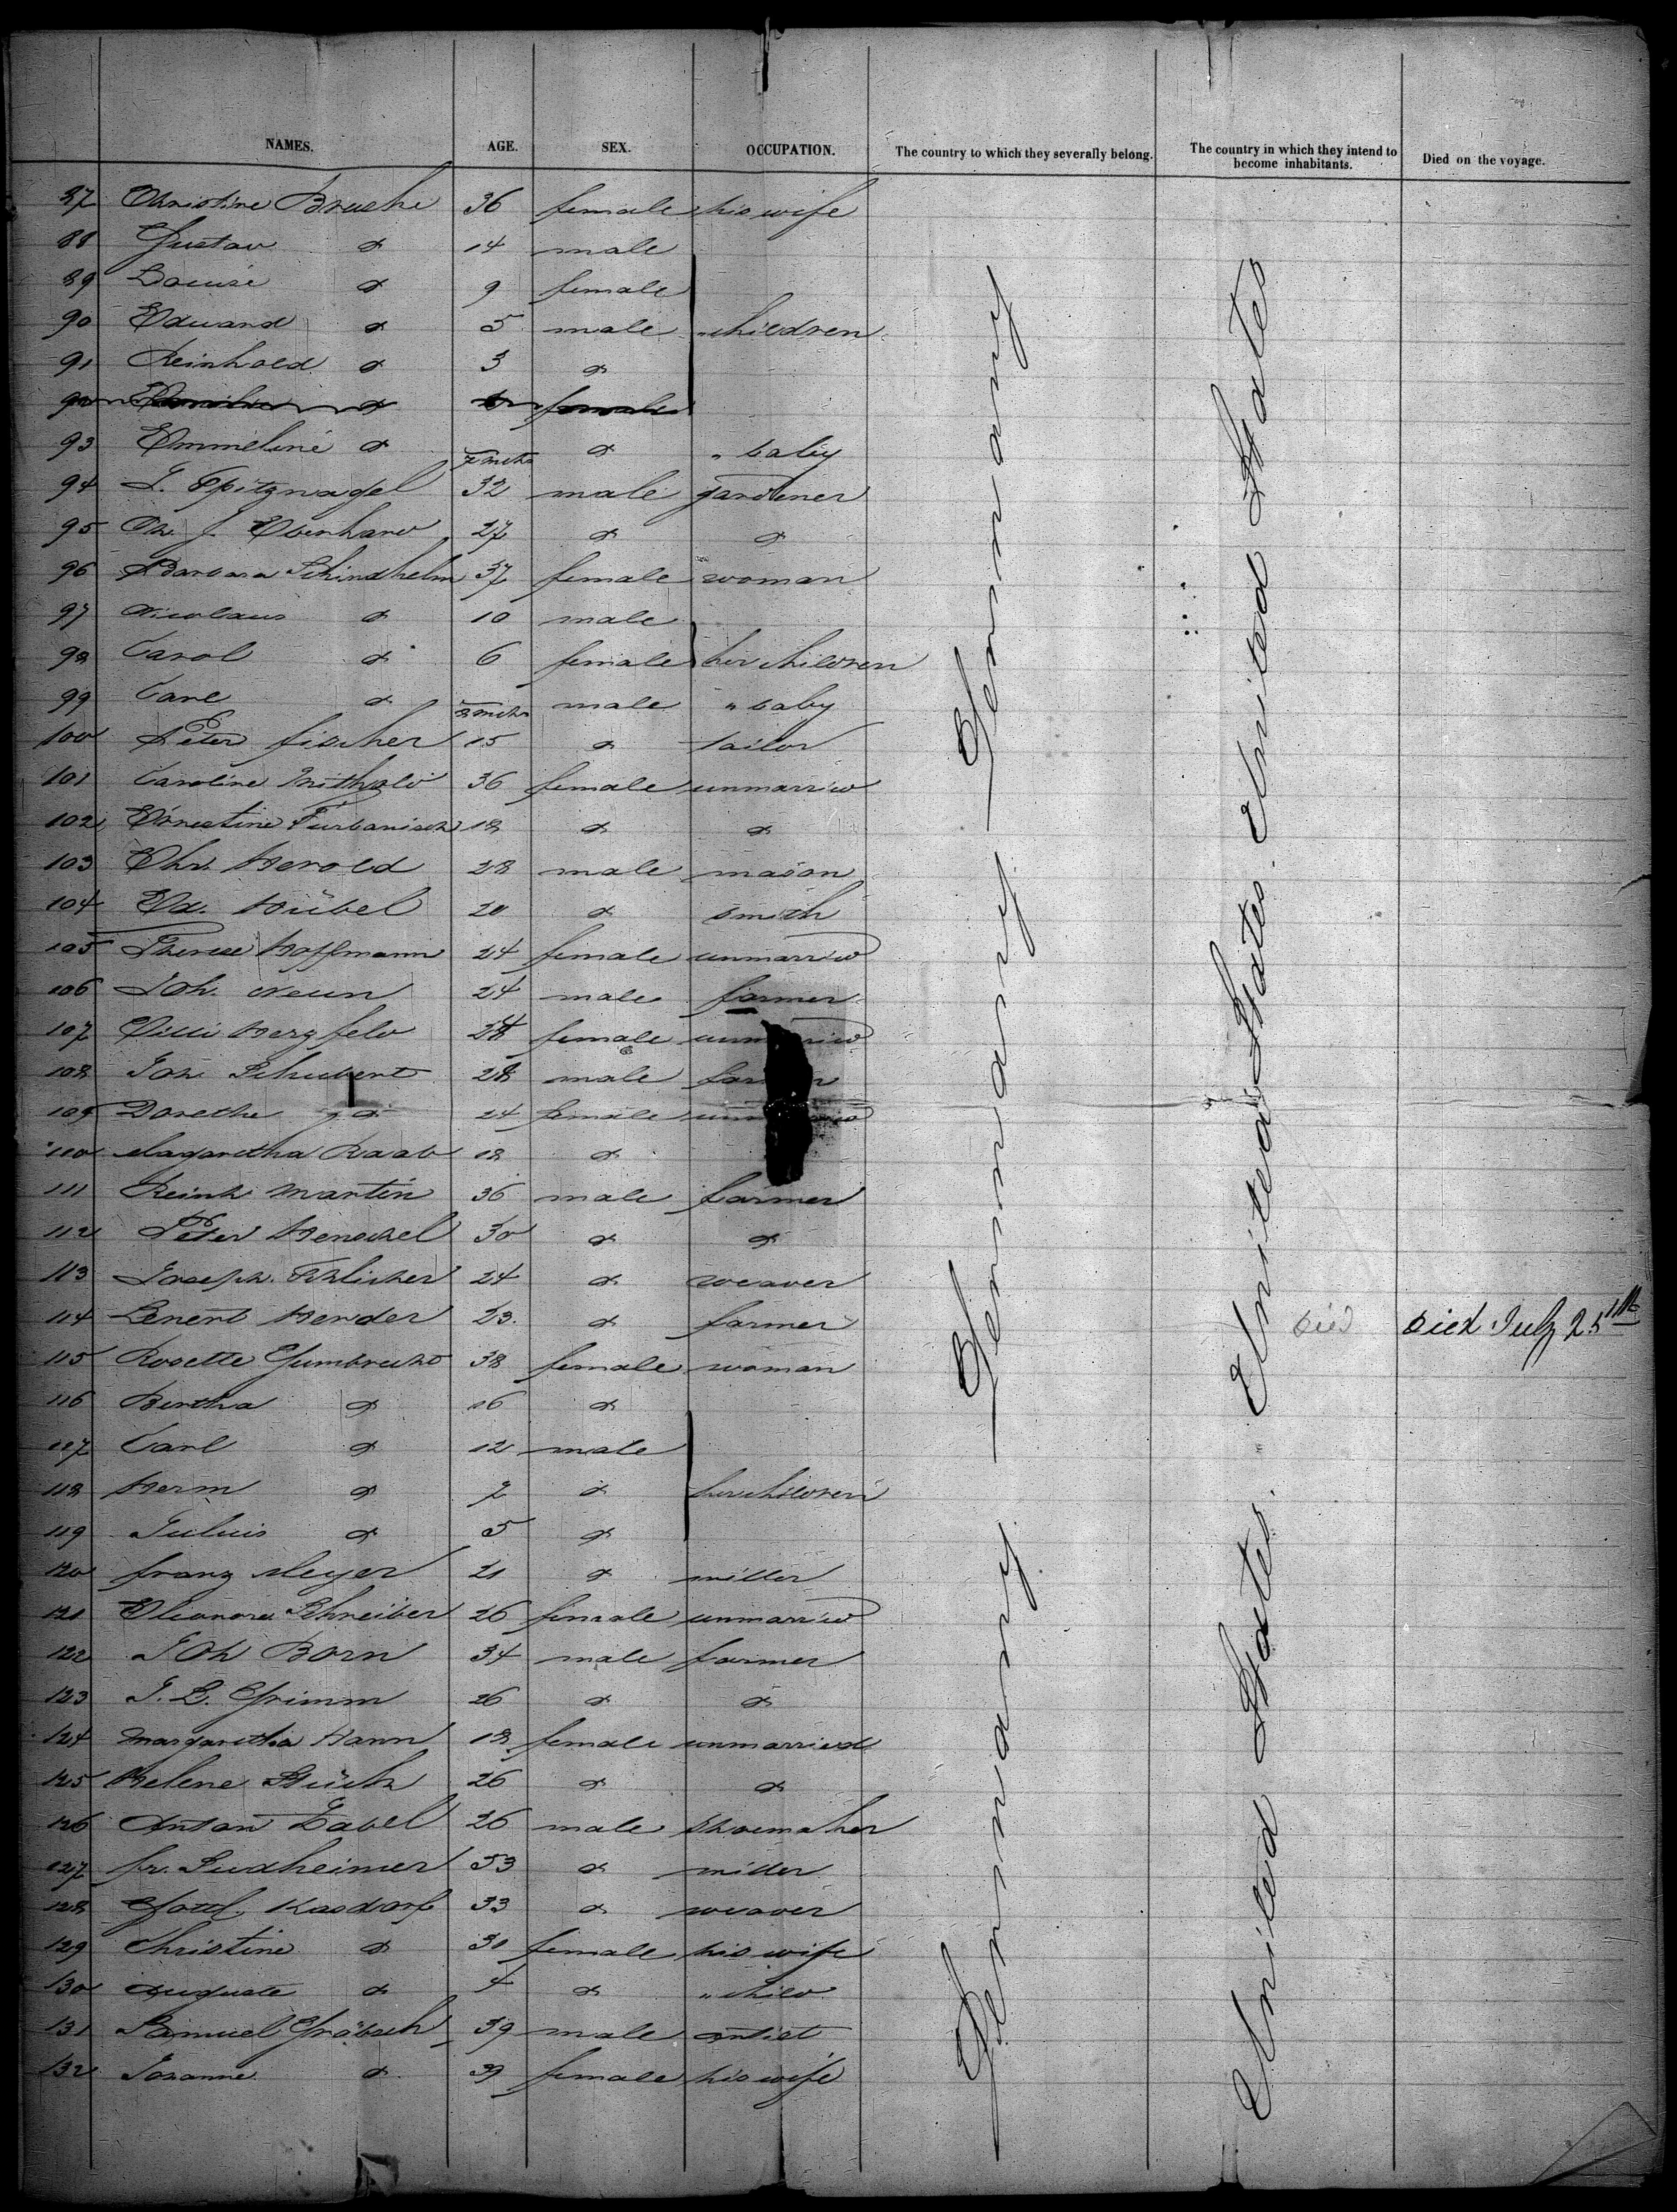 NAMES. AGE. SEX. OCCUPATION. The country to which they severally belong. The country in which they intend to become inhabitants. Died on the voyage.
87 Christine Bruske 36 female his wife
88 Gustav do 14 male
89 Louise do 9 female
90 Edward do 5 male " children
91 Reinhold do 3 do
92 do female
93 Emmeline do 7 mths do " baby
94 L. Spitznagel 32 male gardener
95 J. Eberhard 27 do do
96 Barbara Schindhelm 37 female woman
97 Nicolaus do 10 male
98 Carol do 6 female her children
99 Carl do 8 mths male " baby
100 Peter Fischer 15 do tailor
101 Caroline 36 female unmarried
102 Ernestine 18 do do
103 Chr. Herold 28 male mason
104 Ed. Hübel 20 do smith
105 Therese Hoffmann 24 female unmarried
106 Joh. Neun 24 male farmer
107 Herzfeld female
108 Joh. Schubert male
109 Dorethe do 24 female
110 Magaretha Raab 18 do
111 Reinh Martin 36 male farmer
112 Peter Henschel 30 do do
113 Joseph Schlicher 24 do weaver
114 Lenert Herder 23. do farmer Died Died July 25th
115 Rosette Gumbrecht 38 female woman
116 Bertha do 16 do
117 Carl do 12 male
118 Herm do 7 do her children
119 Julius do 5 do
120 Franz Meyer 21 do miller
121 Eleonore Schreiber 26 female unmarried
122 Joh Born 34 male farmer
123 J. L. Grimm 26 do do
124 Margaretha Hann 18 female unmarried
125 Helene 26 do do
126 Anton Zabel 26 male shoemaker
127 Fr. Sudheimer 53 do miller
128 Gottl. Kasdorf 33 do weaver
129 Christine do 30 female his wife
130 Auguste do 4 do " child
131 Samuel Gräbsch 39 male artist
132 Johanne do 39 female his wife
Germany Germany Germany
United States. United States. United States